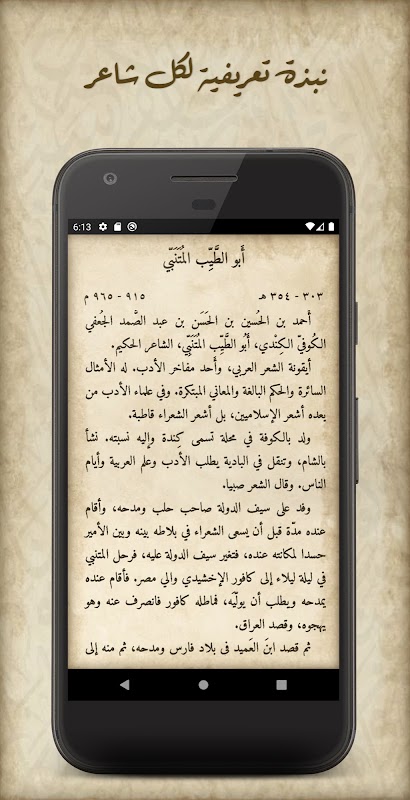 نبذة تعريفية لكل شاعر
6:13
أَبو الطَّيِّب المُتَنَبّي
٣٠٣ - ٣٥٤ هـ
٩١٥ - ٩٦٥ م
أَحمد بن الحُسين بن الحَسَن بن عبد الصَّمد الجُعفي
الكُوفيّ الكِنْدي، أَبُو الطَّيِّب المُتَنَبّي، الشاعر الحكيم.
أيقونة الشعر العربي، وأَحد مفاخر الأدب. له الأمثال
السائرة والحكم البالغة والمعاني المبتكرة. وفي علماء الأدب من
يعده أشعر الإسلاميين، بل أشعر الشعراء قاطبة.
ولد بالكوفة في محلة تسمى كِندة وإليه نسبته. نشأ
بالشام، وتنقل في البادية يطلب الأدب وعلم العربية وأيام
الناس. وقال الشعر صبيا.
وفد على سيف الدولة صاحب حلب ومدحه، وأقام
عنده مدّة قبل أن يسعى الشعراء في بلاطه بينه وبين الأمير
حسدا لمكانته عنده، فتغير سيف الدولة عليه، فرحل المتنبي
في ليلة ليلاء إلى كافور الإخشيدي والي مصر. فأقام عنده
يمدحه ويطلب أن يولّيَه، فماطله كافور فانصرف عنه وهو
يهجوه، وقصد العراق.
ثم قصد ابنَ العَميد في بلاد فارس ومدحه، ثم منه إلى